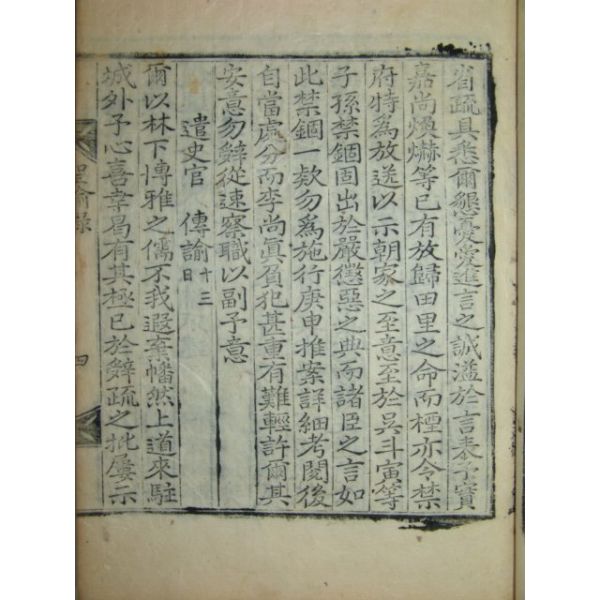 省疏具悉爾懇憂愛進言之誠溢於言表予實
嘉尚煥爀等已有放歸田里之命而檉亦令禁
府特爲放送以示朝家之至意至於吳斗寅等
子孫禁錮固出於嚴懲惡之典而諸臣之言如
此禁錮一款勿爲施行庚申推案詳細考閱後
自當處分而李尚眞負犯甚重有難輕許爾其
安意勿辭從速察職以副予意
遣史官 傳諭 十三日
爾以林下博雅之儒不我遐棄幡然上道來駐
城外予心喜幸曷有其極已於辭疏之批屢示
四